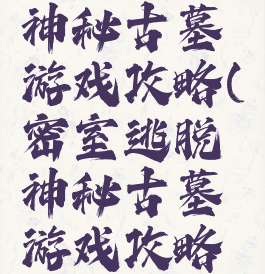 神秘古墓
游戏攻略(
密室逃脱
神秘古墓
游戏攻略